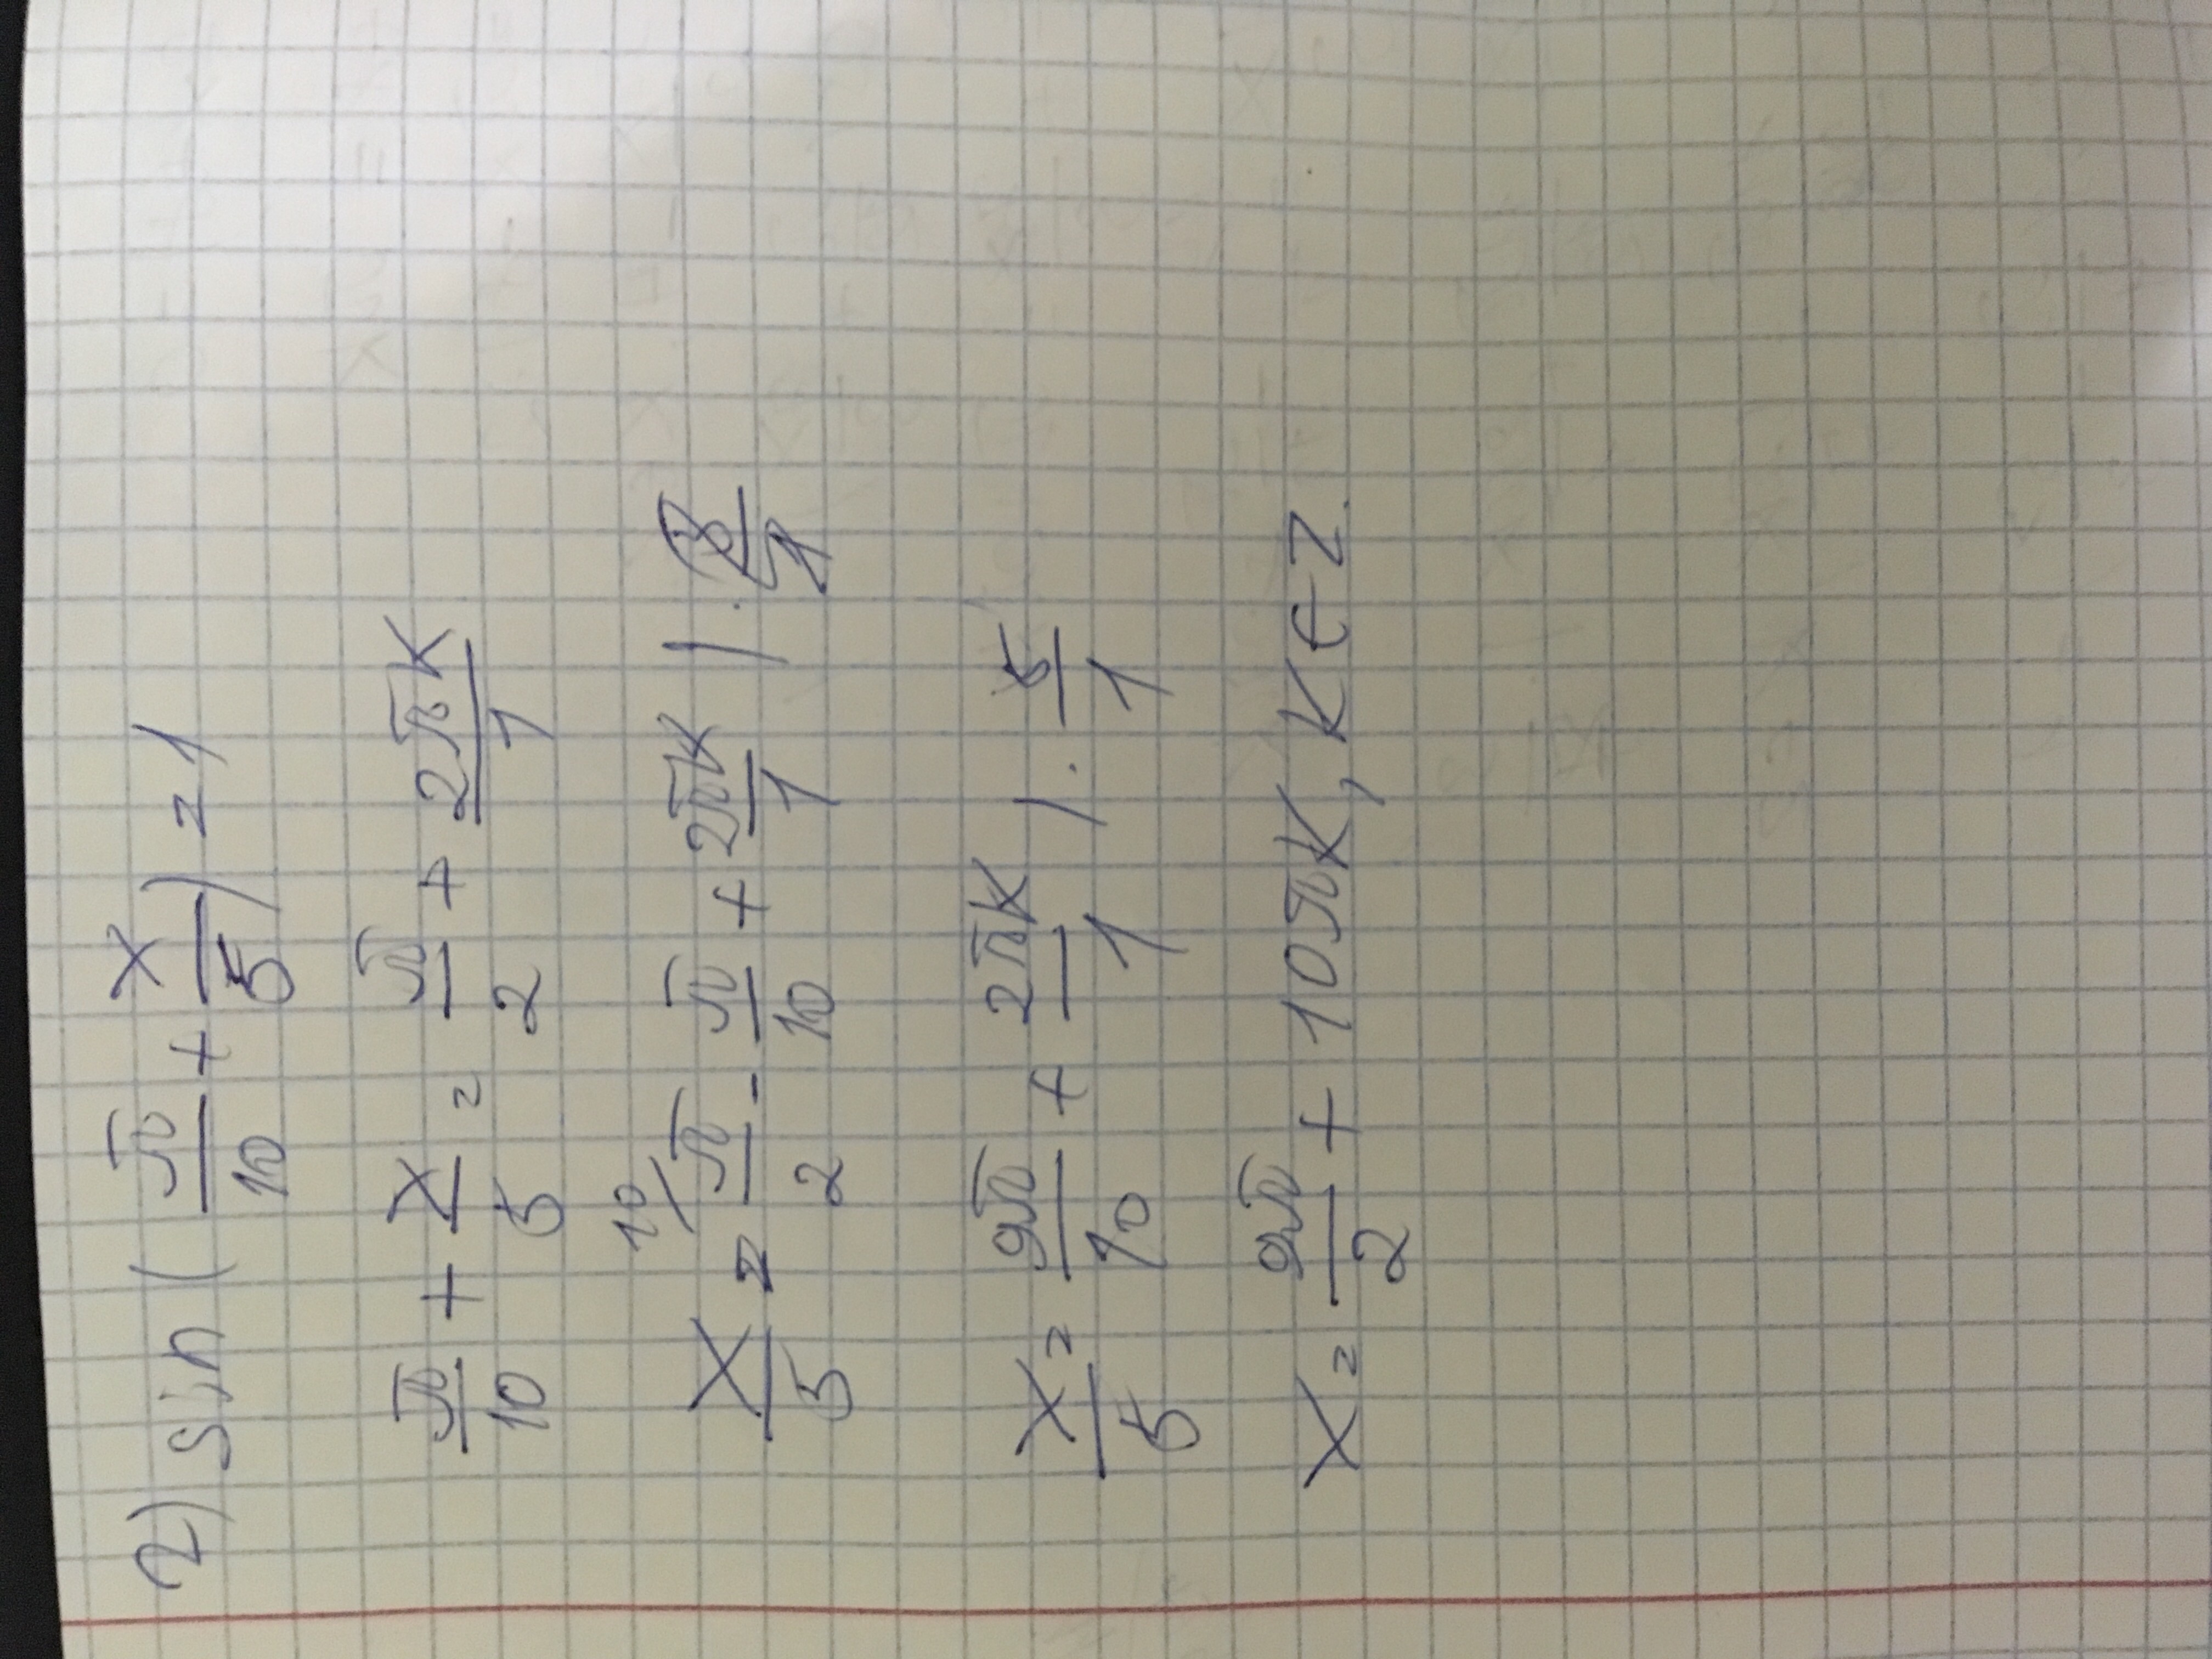 2) sin (π/10 + x/5) = 1
π/10 + x/5 = π/2 + 2πk/1
x/5 = 10/ π/2 - π/10 + 2πk/1 | ·
x/5 = 9π/10 + 2πk/1 | · 5/1
x = 9π/2 + 10πk, k ∈ Z.